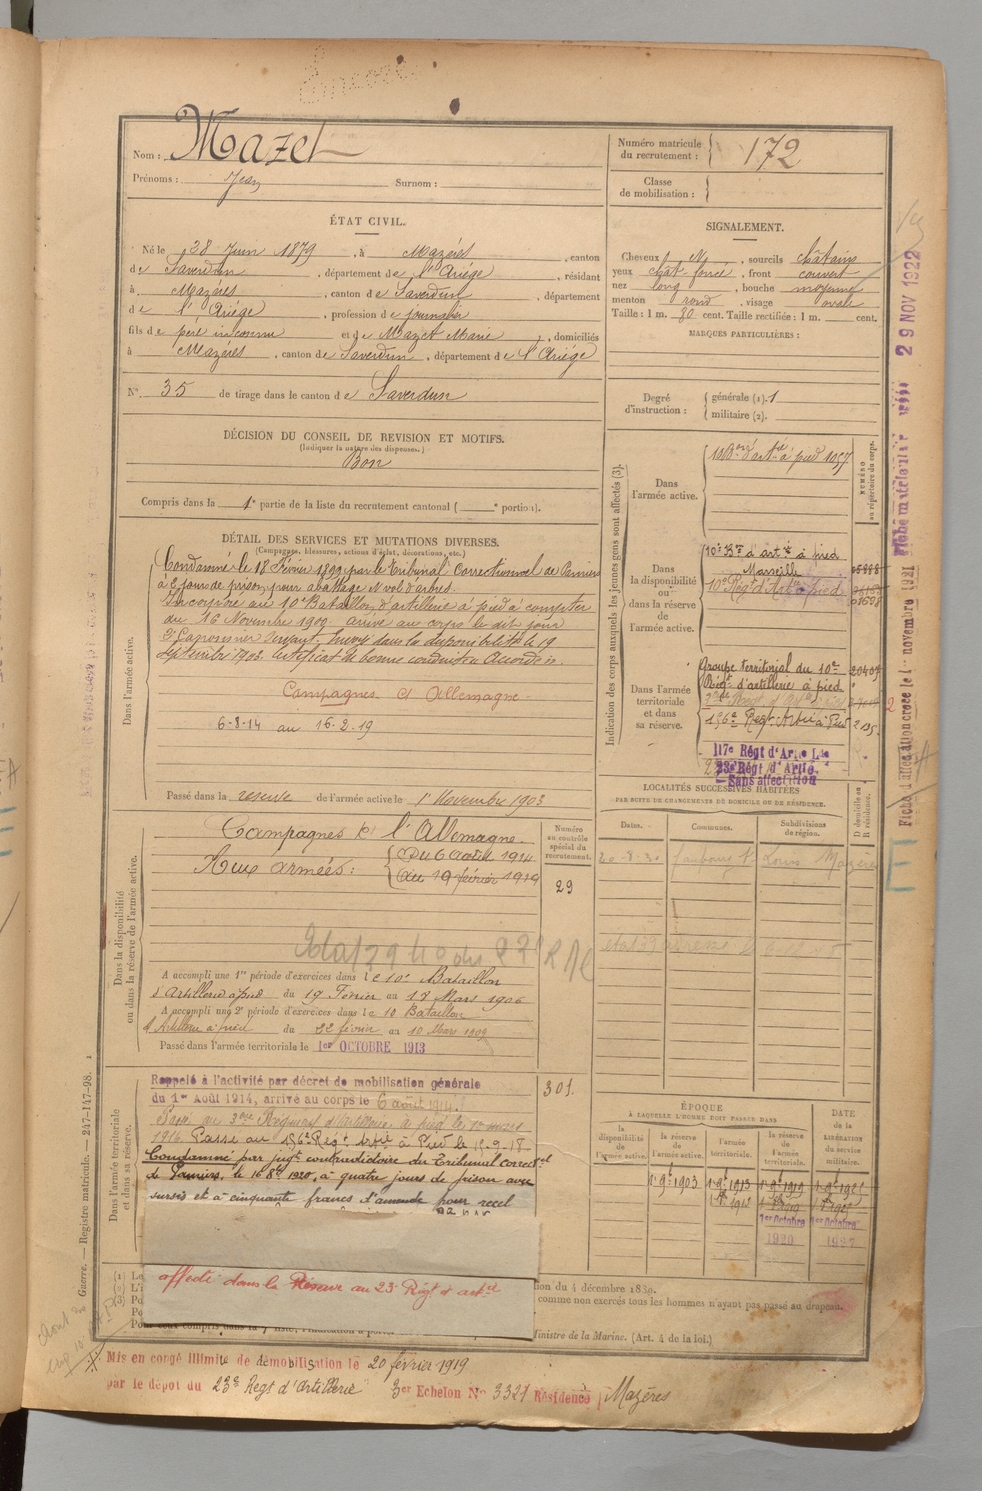 Nom : Mazet
Prénoms : Jean Surnom :
Numéro matricule du recrutement : 172
Classe de mobilisation :
ÉTAT CIVIL.
Né le 28 Juin 1879, à Mazéres, canton
de Saverdun, département de l'Ariége, résidant
à Mazéres, canton de Saverdun, département
de l'Ariége, profession de journalier
fils de pere inconnu et de Mazet Marie, domiciliés
à Mazéres, canton de Saverdun, département de l'Ariége
N° 35 de tirage dans le canton de Saverdun
DÉCISION DU CONSEIL DE REVISION ET MOTIFS.
(Indiquer la nature des dispenses.)
Bon
Compris dans la 1e partie de la liste du recrutement cantonal ( e portion).
SIGNALEMENT.
Cheveux N, sourcils châtains
yeux chât foncé, front couvert
nez long, bouche moyenne
menton rond, visage ovale
Taille : 1 m. 80 cent. Taille rectifiée : 1 m. cent.
MARQUES PARTICULIÈRES :
Degré d'instruction : générale (1). 1
militaire (2).
DÉTAIL DES SERVICES ET MUTATIONS DIVERSES.
(Campagnes, blessures, actions d'éclat, décorations, etc.)
Dans l'armée active.
Condamné le 18 Février 1899 par le Tribunal Correctionnel de Pamiers
à 6 jours de prison pour abattage et vol d'arbres.
Incorporé au 10e Bataillon d'artillerie à pied à compter
du 16 Novembre 1900 arrivé au corps le dit jour
2e Canonnier servant. Envoyé dans la disponibilité le 19
septembre 1903. Certificat de bonne conduite Accordé
Campagnes ct Allemagne
6-8-14 au 16-2-19
Passé dans la reserve de l'armée active le 1 Novembre 1903
Indication des corps auxquels les jeunes gens sont affectés (3).
NUMÉRO au répertoire du corps.
Dans l'armée active.
10e Bon d'artie à pied 1057
Dans la disponibilité ou dans la réserve de l'armée active.
10e Bon d'artie à pied
Marseille
10e Régt d'Artie à pied
Dans l'armée territoriale et dans sa réserve.
Groupe territorial du 10e 20407
Régt d'artillerie à pied
156e Regt Artie à Pied
117e Régt d'Artie Lde
23e Régt d'Artie
Sans affectation
LOCALITÉS SUCCESSIVES HABITÉES
PAR SUITE DE CHANGEMENTS DE DOMICILE OU DE RÉSIDENCE.
Dates. Communes. Subdivisions de région. D domicile ou R résidence.
20-8-30 faubourg St Louis Mazères
Dans la disponibilité ou dans la réserve de l'armée active.
Numéro au contrôle spécial du recrutement.
Campagnes ct l'Allemagne.
Aux armées : Du 6 août 1914
au 19 février 1919
29
A accompli une 1re période d'exercices dans le 10e Bataillon
d'Artillerie à pied du 19 Février au 18 Mars 1906
A accompli une 2e période d'exercices dans le 10 Bataillon
d'Artillerie à pied du 22 février au 10 Mars 1909
Passé dans l'armée territoriale le 1er OCTOBRE 1913
Dans l'armée territoriale et dans sa réserve.
301.
Rappelé à l'activité par décret de mobilisation générale
du 1er Août 1914, arrivé au corps le 6 août 1914.
Passé au 3me Régiment d'Artillerie à pied le 1er mars
1916 Passé au 156e Regt Artie à Pied le 12-9-18
Condamné par jugt contradictoire du Tribunal correctel
de Pamiers, le 16 8e 1920, à quatre jours de prison avec
sursis et à cinquante francs d'amende pour recel
affecté dans la Réserve au 23e Régt d artie
ÉPOQUE
À LAQUELLE L'HOMME DOIT PASSER DANS
DATE de la LIBÉRATION du service militaire.
la disponibilité de l'armée active. la réserve de l'armée active. l'armée territoriale. la réserve de l'armée territoriale.
1r 9e 1903 1r 9e 1913 1r 9e 1919 1r 9e 1925
1er Octobre 1920
tion du 4 décembre 1830.
comme non exercés tous les hommes n'ayant pas passé au drapeau.
Ministre de la Marine. (Art. 4 de la loi.)
Mis en congé illimité de démobilisation le 20 février 1919
par le dépôt du 23e Regt d'Artillerie 3er Echelon No 3321 Résidence Mazères
Guerre. — Registre matricule. — 247-147-98.
29 NOV 1922
Fiche d'affectation créée le 1er novembre 1921